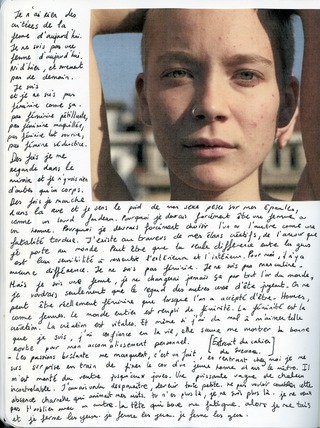 Je n'ai rien des
critères de la
femme d'aujourd'hui.
Je ne suis pas une
femme d'aujourd'hui,
ni d'hier, et encore
pas de demain.
Je suis
et je ne suis pas
féminine comme ça.
pas féminine pétillante,
pas féminine maquillée,
pas féminine tout sourire,
pas féminine séductrice.
Des fois je me
regarde dans le
miroir et je n'y vois rien
d'autre qu'un corps.
Des fois je marche
dans la rue et je sens le poids de mon sexe peser sur mes épaules,
comme un lourd fardeau. Pourquoi je devrais forcément être une femme ou
un homme. Pourquoi je devrais forcément choisir l'un ou l'autre comme une
fatalité tordue. J'existe au travers de mes élans créatifs, de l'amour que
je porte au monde. Peut être que la seule différence entre les gens
est leur sensibilité à ressentir l'extérieur et l'intérieur. Pour moi, il n'y a
aucune différence. Je ne suis pas féminine. Je ne suis pas masculine.
Mais je suis une femme, je ne changerai jamais ça pour tout l'or du monde,
je voudrais seulement que le regard des autres cesse d'être jugeant. On ne
peut être réellement féminine que lorsque l'on a accepté d'être. Hommes,
comme femmes. Le monde entier est rempli de féminité. La féminité est la
création. La création est vitale. Et même si j'ai du mal à m'aimer telle
que je suis, j'ai confiance en la vie, elle saura me montrer la bonne
route pour mon accomplissement personnel. [Extrait du cahier]
« Les passions brûlante me marquent, c'est un fait, en rentrant chez moi je me
suis surprise en train de fixer le cou d'un jeune homme dans le métro. Il
m'est monté du ventre jusqu'aux joues. Une puissante vague de chaleur
incontrolable. J'aurai voulu disparaitre, devenir toute petite. ne pas vouloir combler cette
absence charnelle qui animent mes nuits. tu n'es plus là, je ne suis plus là. je ne veux
pas t'oublier avec un autre. la tête qui tourne me fatigue. alors je me tais
et je ferme les yeux. je ferme les yeux. je ferme les yeux.